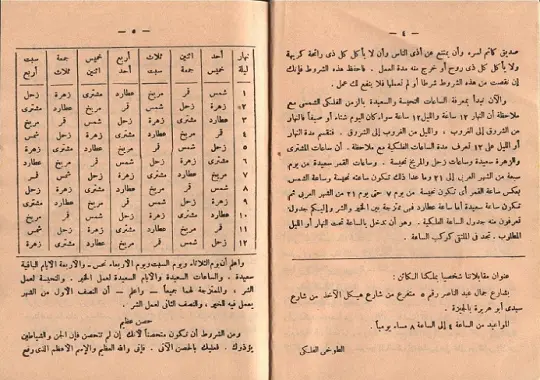 — ٤ —
صديق كاتم لسره وأن يمتنع عن أذى الناس وأن لا يأكل كل ذى رائحة كريهة
ولا يأكل كل ذى روح أو خرج منه مدة العمل . فاحفظ هذه الشروط فإنك
إن نقصت من هذه الشروط شرطا أو لم تعملها فلا ينفع لك عمل .
والآن نبدأ بمعرفة الساعات النحيسة والسعيدة بالزمن الفلكى الشمسى مع
ملاحظة أن النهار ١٢ ساعة والليل ١٢ ساعة سواء كان اليوم شتاء أو صيفاً فالنهار
من الشروق إلى الغروب ، والليل من الغروب إلى الشروق . فتقسم مدة النهار
أو الليل على ١٢ تعرف مدة الساعات الفلكية مع ملاحظة . أن ساعات المشترى
والزهرة سعيدة وساعات زحل والمريخ نحيسة . وساعات القمر سعيدة من يوم
سبعة من الشهر العربى إلى ٢١ وما عدا ذلك تكون ساعته نحيسة وساعة الشمس
بعكس ساعة القمر أى تكون نحيسة من يوم ٧ حتى يوم ٢١ من الشهر العربى ثم
تكون ساعة سعيدة أما ساعة عطارد فهى ممتزجة بين الخير والشر وإليكم جدول
تعرفون منه جدول الساعة الفلكية . وهو أن تدخل بالساعة تحت النهار أو الليل
المطلوب . تجد فى الملتقى كوكب الساعة .
عنوان مقابلاتنا شخصيا بملكنا الكائن :
بشارع جمال عبد الناصر رقم ٥ متفرع من شارع هيكل الآخذ من شارع
سيدى أبو هريرة بالجيزة .
المواعيد من الساعة ٤ إلى الساعة ٨ مساء يومياً .
الطوخى الفلكى
— ٥ —
نهار أحد اثنين ثلاث أربع خميس جمعة سبت
ليلة خميس جمعة سبت أحد اثنين ثلاث أربع
١ شمس قمر مريخ عطارد مشترى زهرة زحل
٢ زهرة زحل شمس قمر مريخ عطارد مشترى
٣ عطارد مشترى زهرة زحل شمس قمر مريخ
٤ قمر مريخ عطارد مشترى زهرة زحل شمس
٥ زحل شمس قمر مريخ عطارد مشترى زهرة
٦ مشترى زهرة زحل شمس قمر مريخ عطارد
٧ مريخ عطارد مشترى زهرة زحل شمس قمر
٨ شمس قمر مريخ عطارد مشترى زهرة زحل
٩ زهرة زحل شمس قمر مريخ عطارد مشترى
١٠ عطارد مشترى زهرة زحل شمس قمر مريخ
١١ قمر مريخ عطارد مشترى زهرة زحل شمس
١٢ زحل شمس قمر مريخ عطارد مشترى زهرة
واعلم أن يوم الثلاثاء ويوم السبت ويوم الاربعاء نحس — والاربعة الايام الباقية
سعيدة . والساعات السعيدة والايام السعيدة لعمل الخير . والنحيسة لعمل
الشر ، والممتزجة لهما جميعاً — واعلم — أن النصف الاول من الشهر
يعمل فيه الخير ، والنصف الثانى لعمل الشر .
حصن عظيم
ومن الشروط أن تكون متحصناً لأنك إن لم تتحصن فإن الجن والشياطين
يؤذوك . فعليك بالحصن الآتى . فإنى والله العظيم والإسم الاعظم الذى رفع